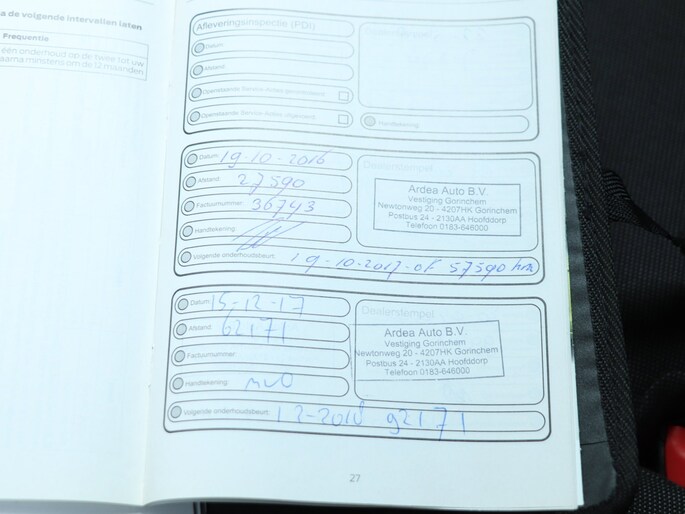 a de volgende intervallen laten
Frequentie
een onderhoud op de
tot uw
minstens om de 12 maanden
Afleveringsinspectie (PDI)
Datum:
Afstand:
Openstaande Service Acties
Openstaande Service Acties
Handtekening:
Datum: 19-10-2016
Afstand: 27590
Factuurnummer: 36743
Handtekening:
Volgende onderhoudsbeurt: 19-10-2017 of 57590 km
Dealerstempel
Ardea Auto B.V.
Vestiging Gorinchem
Newtonweg 20 - 4207HK Gorinchem
Postbus 24 - 2130AA Hoofddorp
Telefoon 0183-646000
Datum: 15-12-17
Afstand: 62171
Factuurnummer:
Handtekening:
Volgende onderhoudsbeurt: 12-2018 92171
Dealerstempel
Ardea Auto B.V.
Vestiging Gorinchem
Newtonweg 20 - 4207HK Gorinchem
Postbus 24 - 2130AA Hoofddorp
Telefoon 0183-646000
27